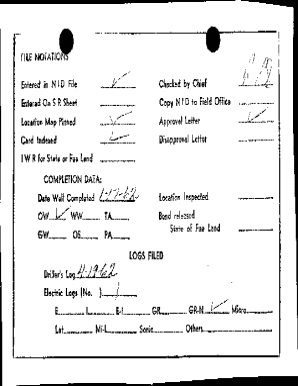 FILE NOTATIONS
Entered in NID File ✓ Checked by Chief
Entered On S R Sheet Copy NID to Field Office
Location Map Pinned ✓ Approval Letter ✓
Card Indexed ✓ Disapproval Letter
I W R for State or Fee Land
COMPLETION DATA:
Date Well Completed 1-17-62 Location Inspected
OW ✓ WW TA Bond released
GW OS PA State of Fee Land
LOGS FILED
Driller's Log 4-19-62
Electric Logs (No. ) 1
E I E-I GR GR-N ✓ Micro
Lat Mi-L Sonic Others